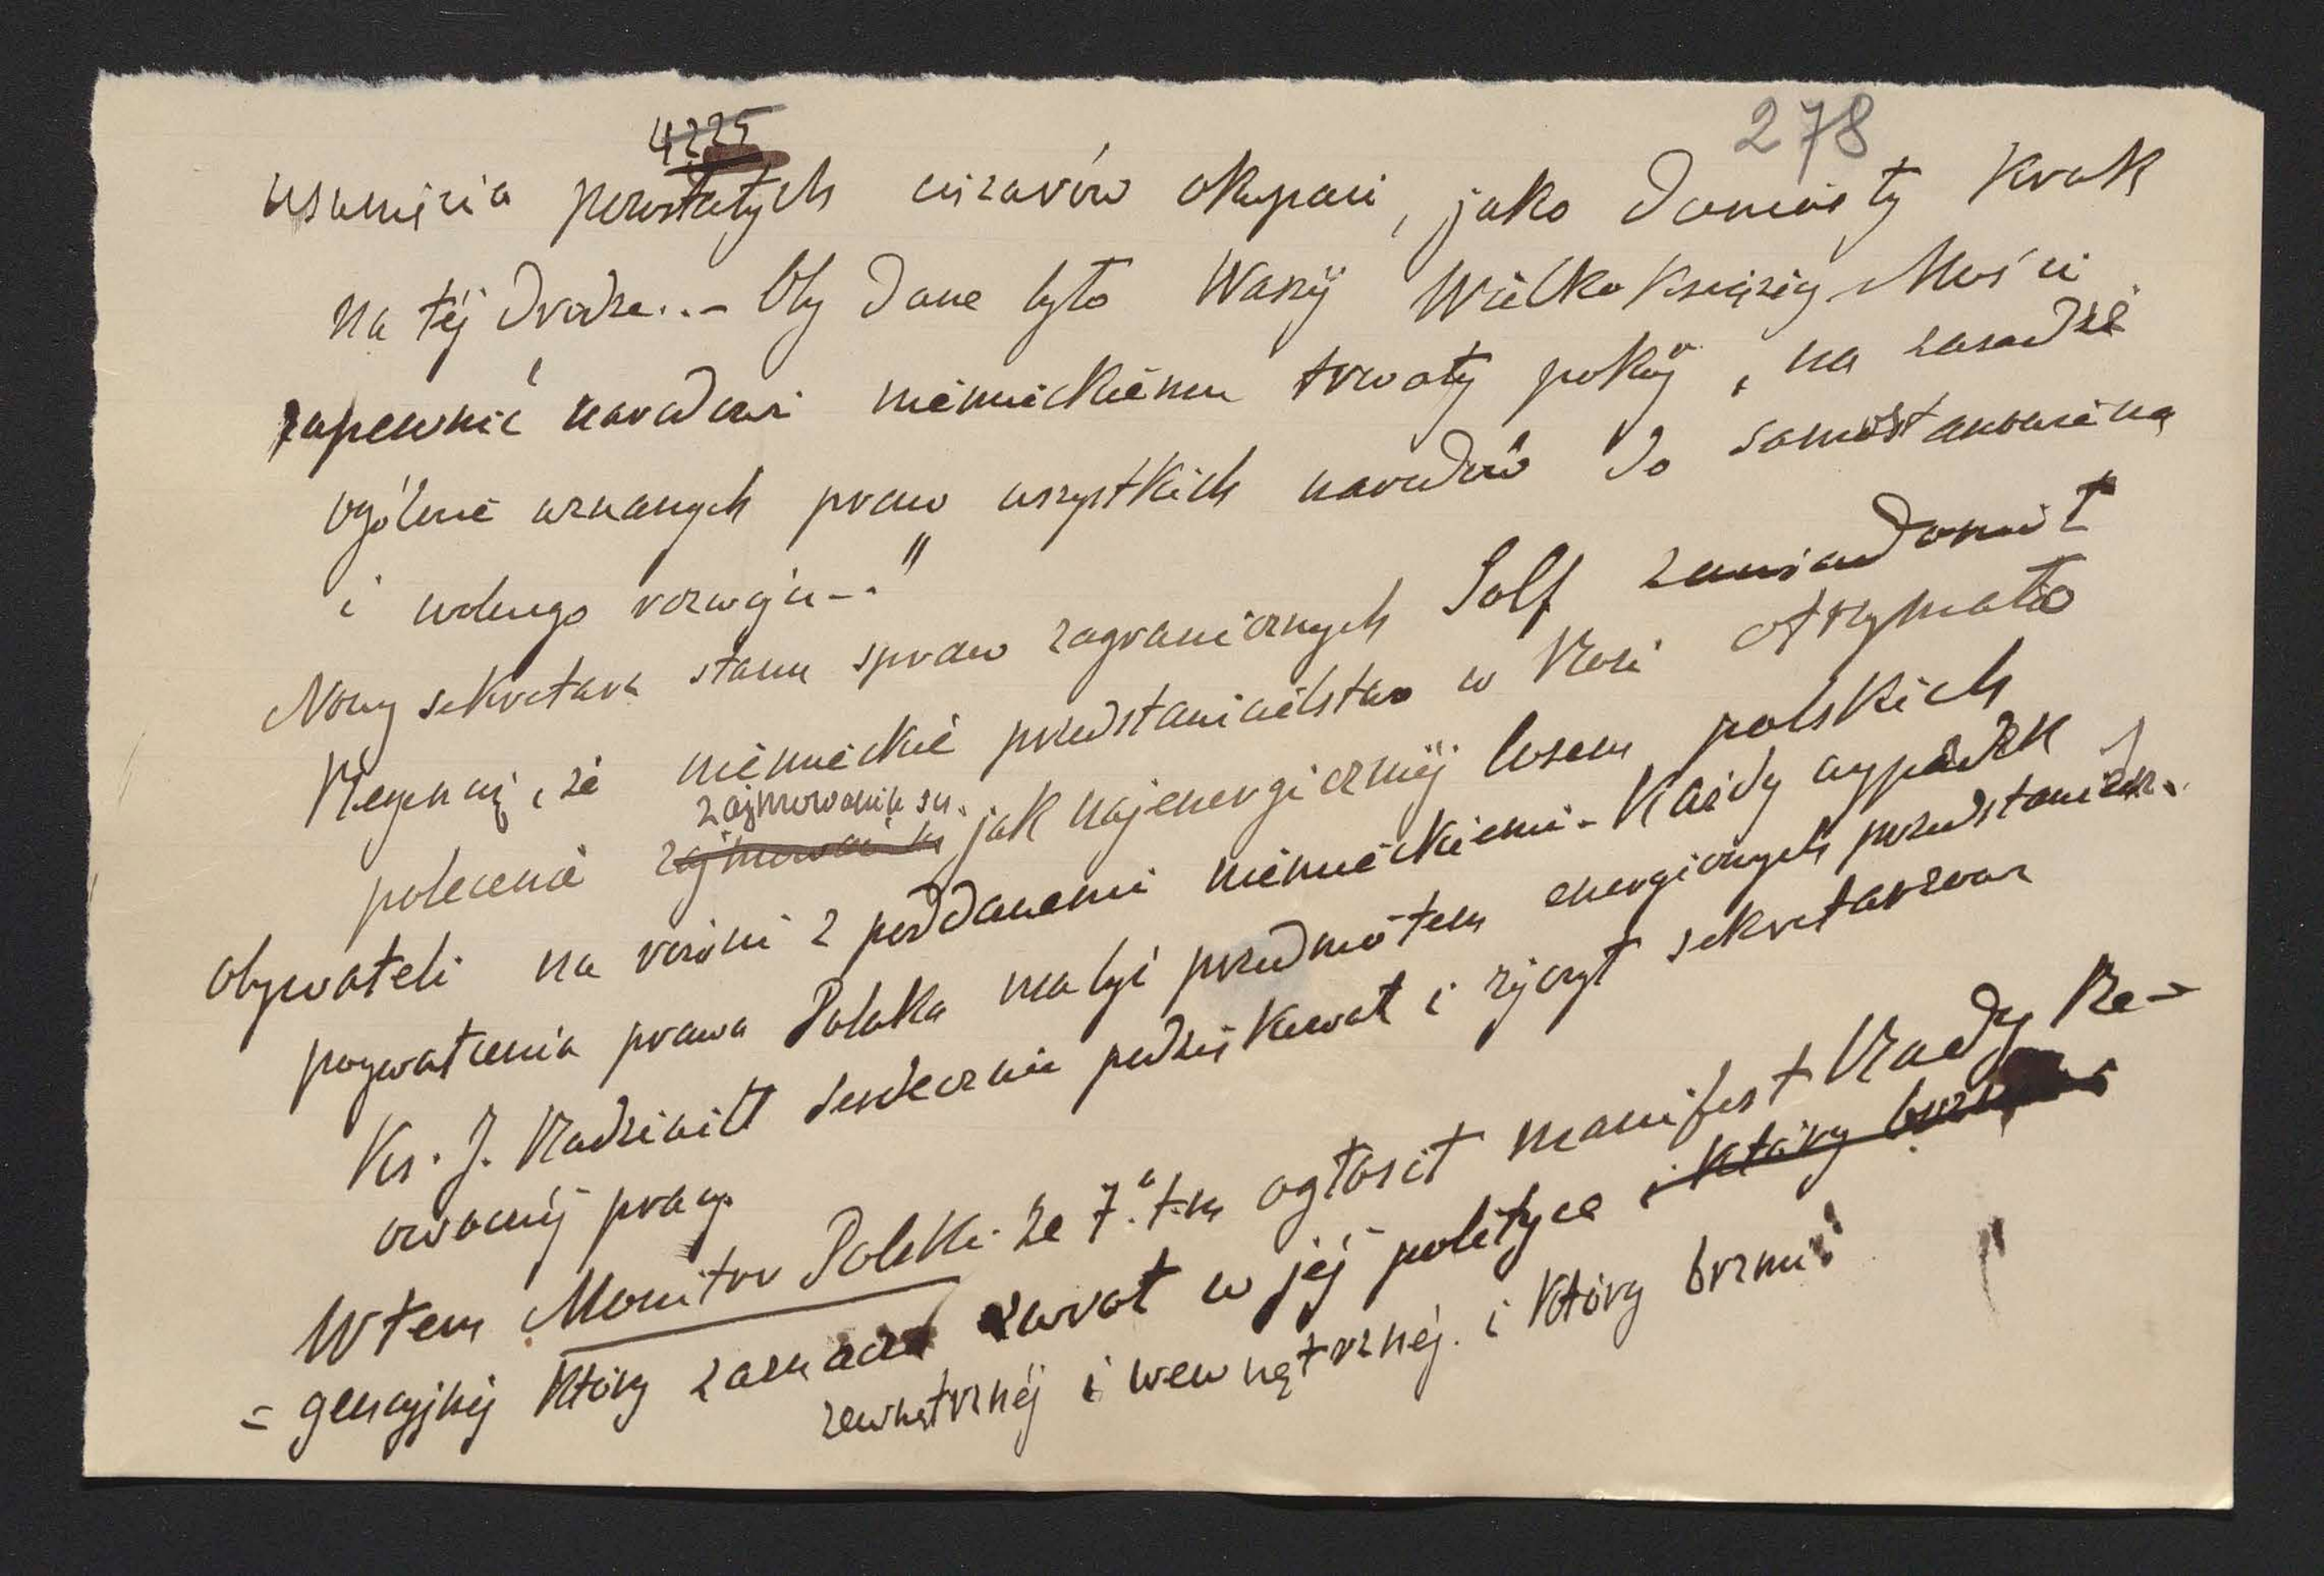 4225
278
usunięcia pozostałych ciężarów okupacji, jako doniosły krok
na téj drodze..- Oby dane było Waszéj Wielko Książęcéj Mości
zapewnić narodowi niemieckiemu trwały pokój, na zasadzie
ogólnie uznanych praw wszystkich narodów do samostanowienia
i wolnego rozwoju-."
Nowy sekretarz stanu spraw zagranicznych Solf zawiadomił
Regencję, że niemieckie przedstawicielstwo w Rosji otrzymało
zajmowania się
polecenie zajmować się jak najenergiczniéj losem polskich
obywateli na równi z poddanemi niemieckiemi - Każdy wypadek
pogwałcenia prawa Polaka ma być przedmiotem energicznych przedstawień.
Ks. J. Radziwiłł serdecznie podziękował i życzył sekretarzowi
owocnéj pracy.
W tem Monitor Polski ze 7. t.m ogłosił manifest Rady Re-
=gencyjnéj który zaznacza zwrot w jéj polityce i który
zewnętrznéj i wewnętrznéj. i który brzmi: